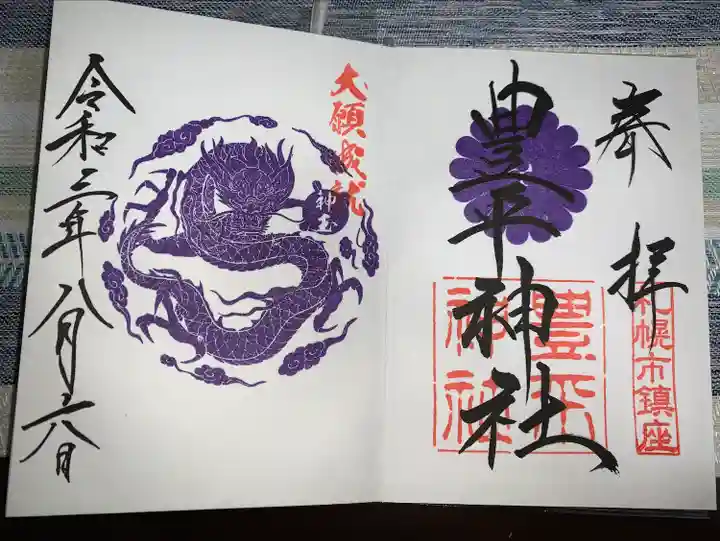 奉拝
札幌市鎮座
豊平神社
豊平神社
大願成就
神玉
令和三年八月二八日